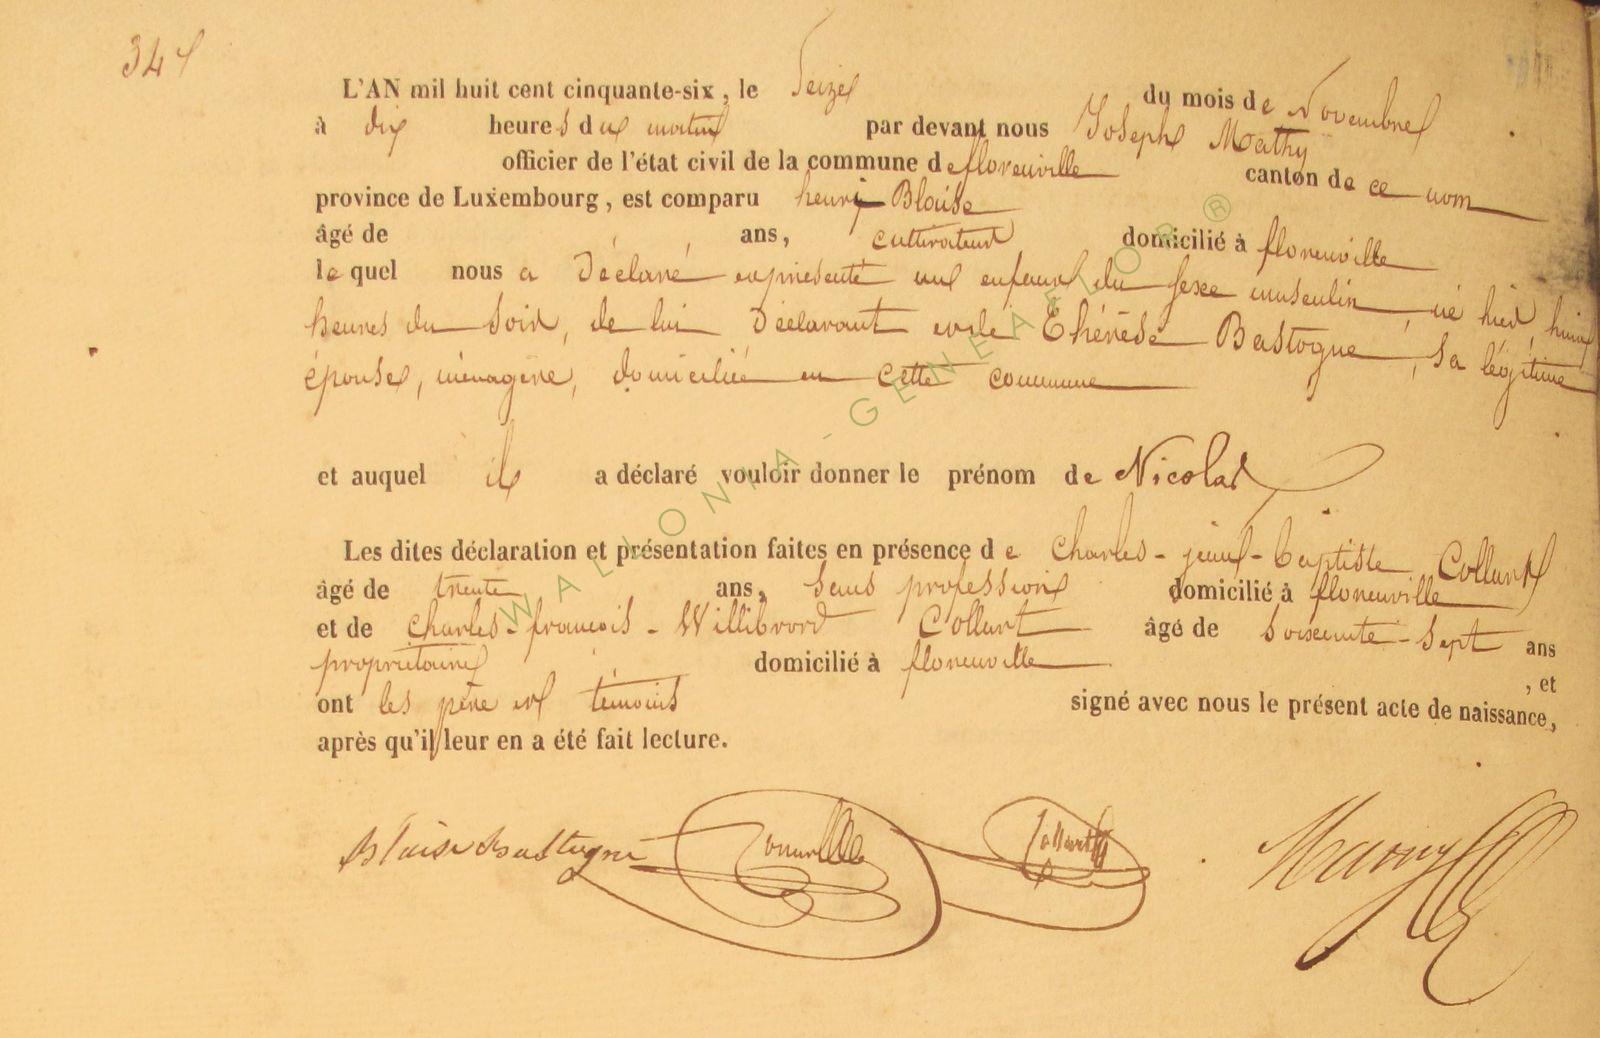 34
L'AN mil huit cent cinquante-six, le Seize du mois de Novembre
à dix heures du matin par devant nous Joseph Mathy
officier de l'état civil de la commune de florenville canton de ce nom
province de Luxembourg, est comparu henry Blaise
âgé de ans, cultivateur domicilié à florenville
le quel nous a Déclaré et présenté un enfant du sexe masculin, né hier, huit
heures du soir, de lui Déclarant et de Thérèse Bastogne, sa légitime
épouse, ménagère, domiciliée en cette commune
et auquel il a déclaré vouloir donner le prénom de Nicolas
Les dites déclaration et présentation faites en présence de Charles-jean-baptiste Collart
âgé de trente ans, sans profession domicilié à florenville
et de charles-françois-Willibrord Collart âgé de soixante-sept ans
propriétaire domicilié à florenville, et
ont les père et témoins signé avec nous le présent acte de naissance,
après qu'il leur en a été fait lecture.
Blaise Bastogne Collart Mathy
WALLONIA-GENEALOR ®